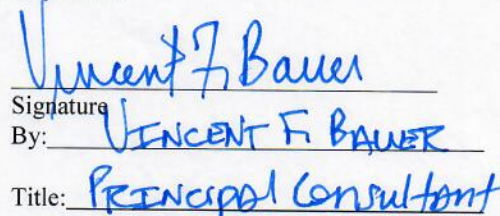 Vincent F. Bauer
Signature
By: VINCENT F. BAUER
Title: PRINCIPAL Consultant